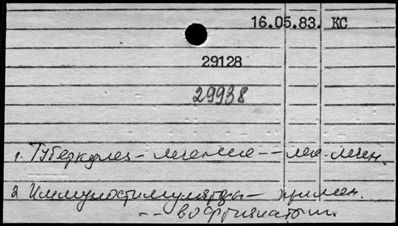 16.05.83. КС
29128
29938
1. Туберкулез - лечение -- лек. лечен.
2 Иммуностимуляторы - примен.
-- во фтизиатрии